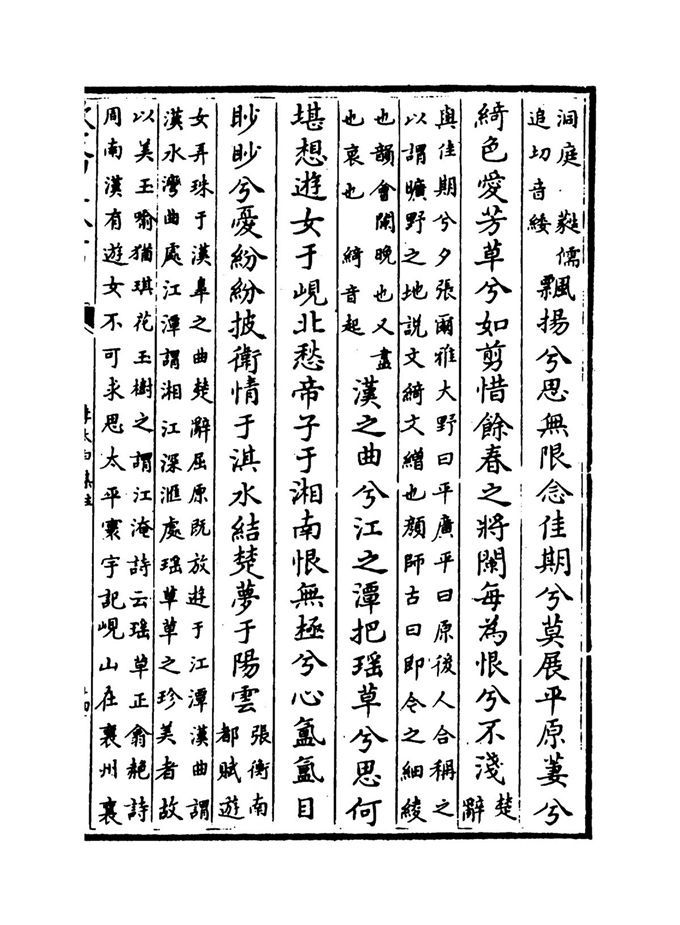 洞庭 蕤儒
追切音緌
飄揚兮思無限念佳期兮莫展平原萋兮
綺色愛芳草兮如剪惜餘春之將闌每為恨兮不淺
楚
辭
與佳期兮夕張爾雅大野曰平廣平曰原後人合稱之
以謂曠野之地説文綺文繒也顔師古曰即今之細綾
也韻會闌晚也又盡
也衰也 綺音起
漢之曲兮江之潭把瑶草兮思何
堪想遊女于峴北愁帝子于湘南恨無極兮心氳氳目
眇眇兮憂紛紛披衛情于淇水結楚夢于陽雲
張衡南
都賦遊
女弄珠于漢臯之曲楚辭屈原既放遊于江潭漢曲謂
漢水灣曲處江潭謂湘江深滙處瑶草草之珍美者故
以美玉喻猶琪花玉樹之謂江淹詩云瑶草正翕赩詩
周南漢有遊女不可求思太平寰宇記峴山在襄州襄